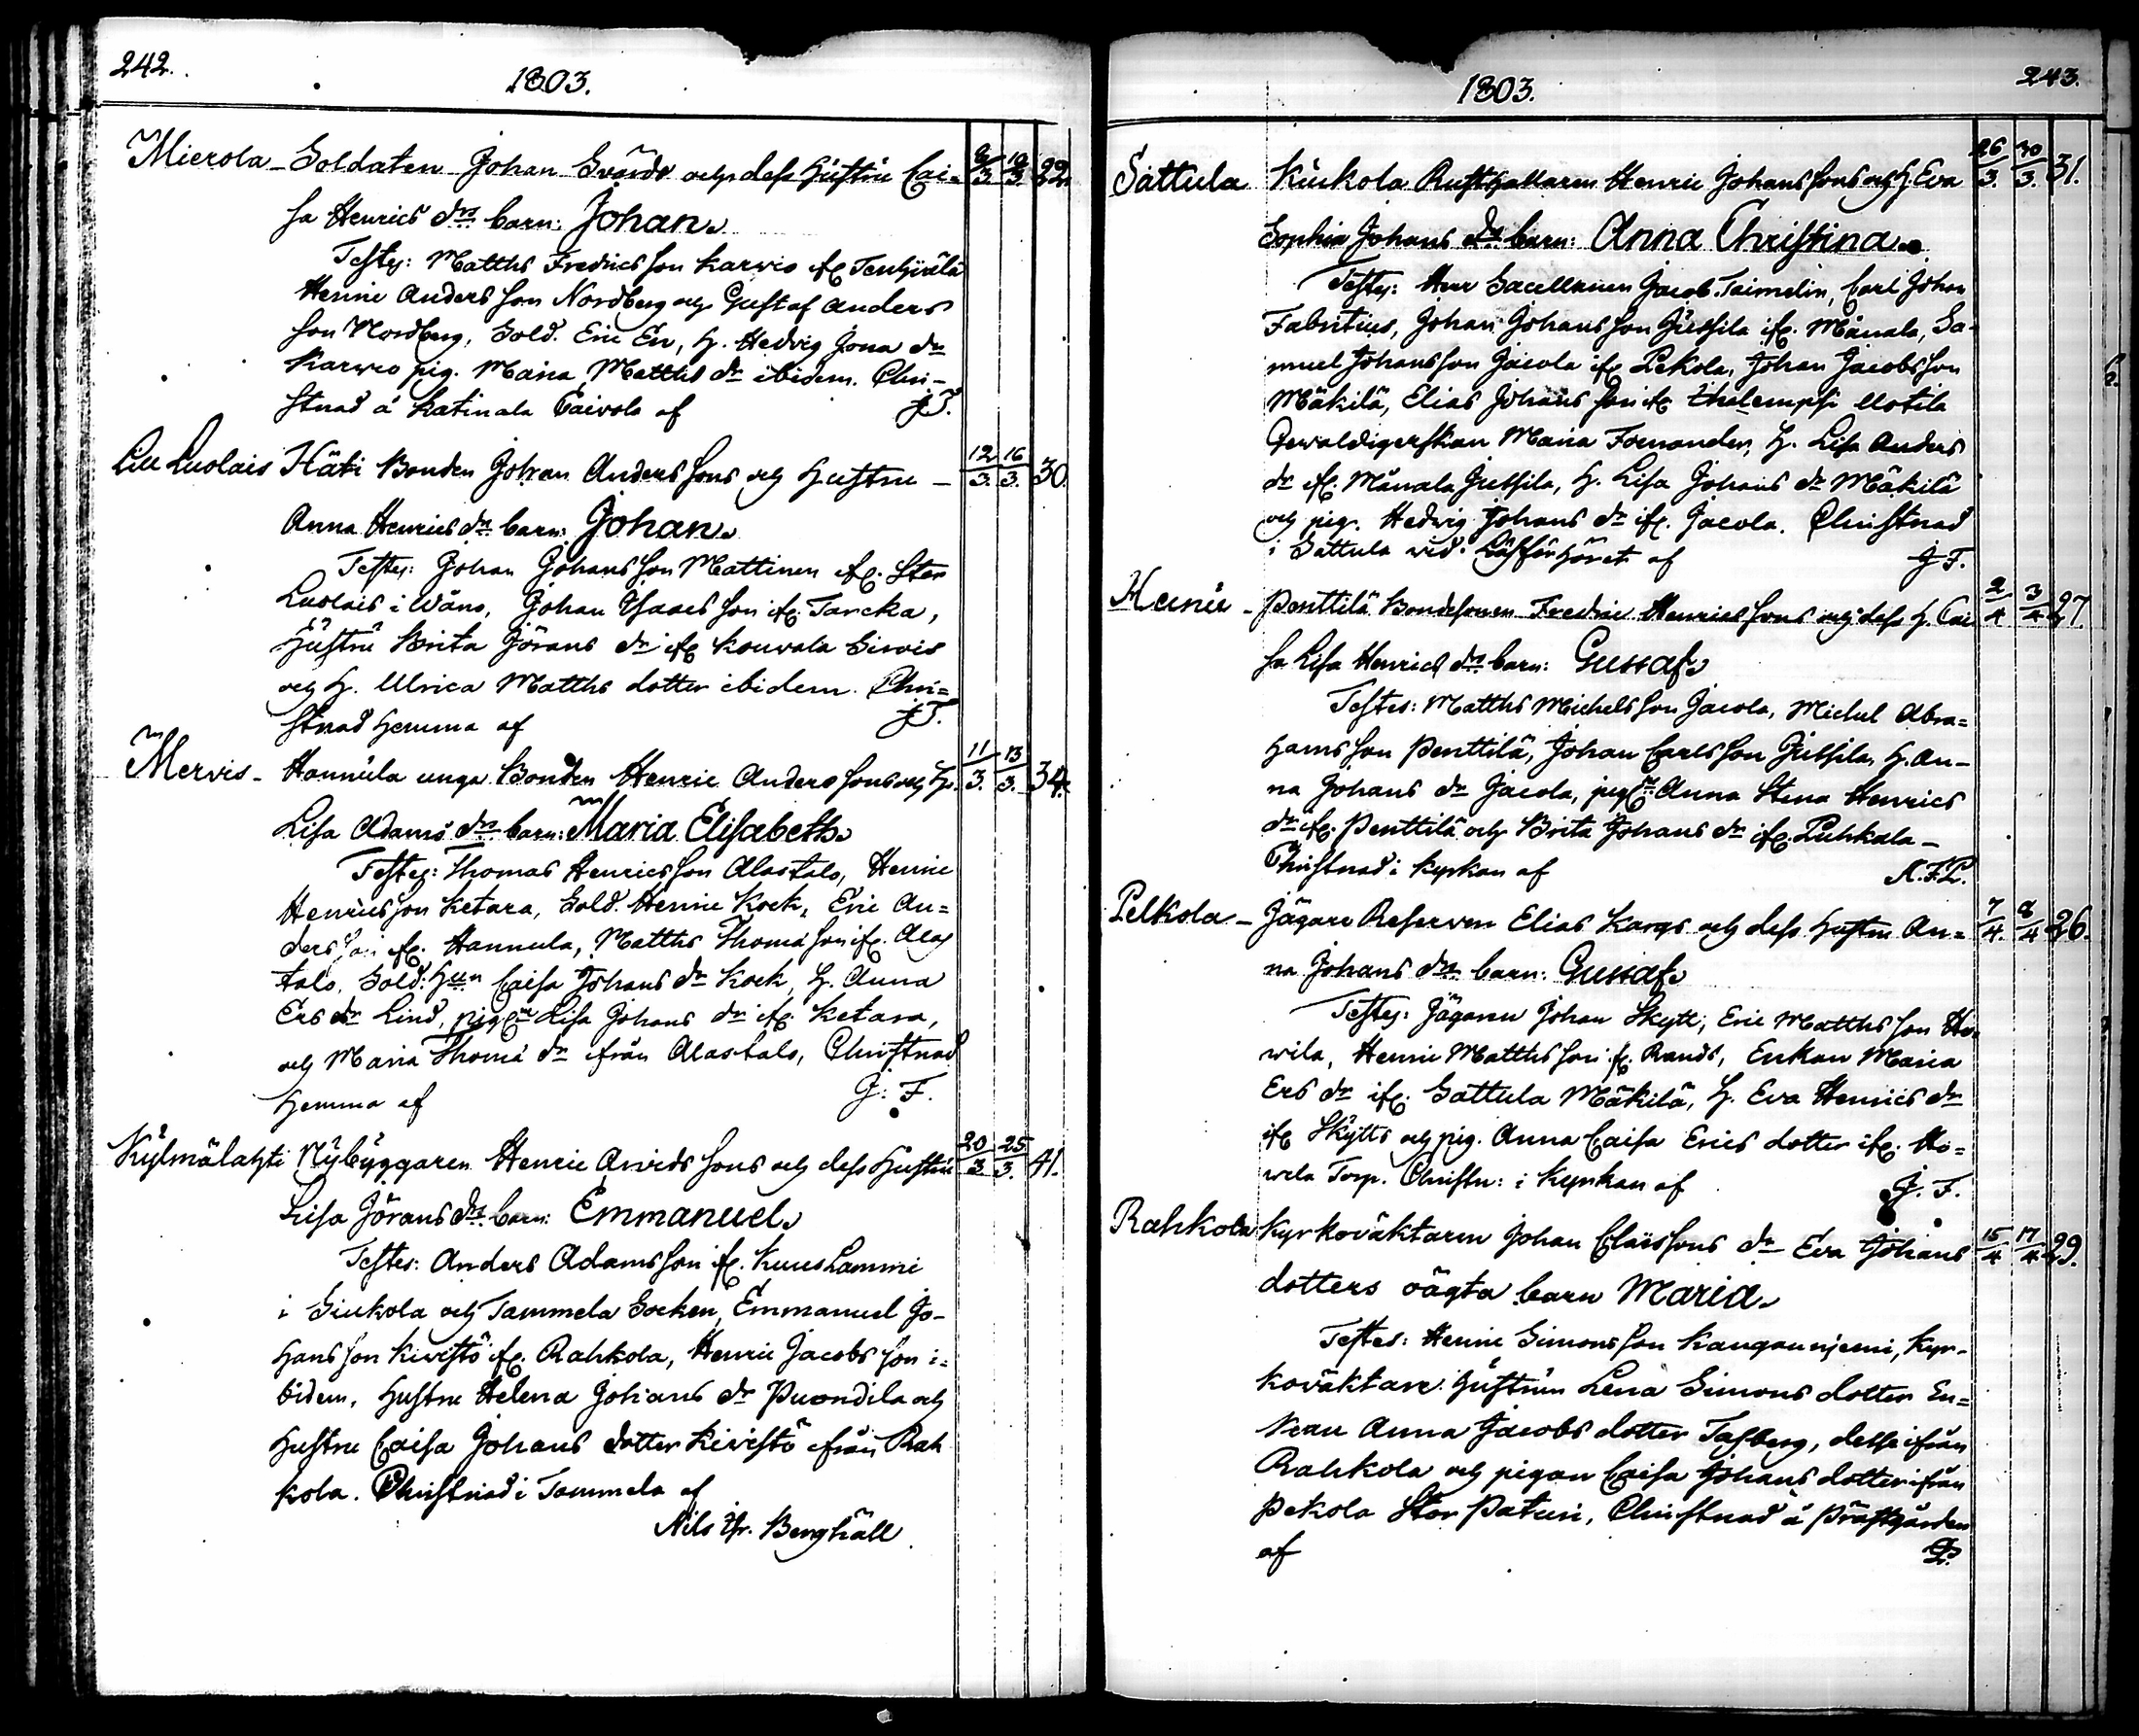 242.
1803.
Mierola - Soldaten Johan Svärds och dess hustru Cai= 9/3 10/3 22.
sa Henrics drs barn: Johan.
Testes: Matths Fredricsson Karvio ifr. Tenhiälä
Henric Andersson Nordberg och Gustaf Anders
son Nordberg, Sold. Eric En, h. Hedvig Jona dr
Karvio pig. Maria Matths dr ibidem. Chri-
stnad å Katinala Caivola af J.F.
Lill Luolais Häti Bonden Johan Anderssons och hustru - 12/3. 16/3. 30.
Anna Henrics drs barn: Johan.
Testes: Johan Johansson Mattinen ifr. Stor
Luolais i Wåno, Johan Isaacsson ifr. Tarcka,
hustru Brita Görans dr ifr. Kouvala Sirvis
och h. Ulrica Matths dotter ibidem. Chri=
stnad hemma af J.F.
Mervis - Hannula unga Bonden Henric Anderssons och h. 11/3. 13/3. 34.
Lisa Adams drs barn: Maria Elisabeth.
Testes: Thomas Henricsson Alastalo, Henric
Henricsson Ketara, Sold. Henric Kock, Eric An=
dersson ifr. Hannula, Matths Thomasson ifr. Alas
talo, Sold. hun Caisa Johans dr Kock, h. Anna
Ers dr Lind, pigorne Lisa Johans dr ifr. Ketara,
och Maria Thomæ dr ifrån Alastalo, Christnad
hemma af J. F.
Kylmälahti Nybyggaren Henric Arvids sons och dess hustru 20/3 25/3. 41.
Lisa Jörans drs barn: Emmanuel.
Testes: Anders Adamsson ifr. Kuuslammi
i Siukola och Tammela Socken, Emmanuel Jo-
hansson Kivistö ifr. Rahkola, Henric Jacobsson i=
bidem, hustru Helena Johans dr Puondila och
hustru Caisa Johans dotter Kivistö ifrån Rah
kola. Christnad i Tammela af
Nils Berghäll
1803.
243.
Sattula Kiukola Rusthållaren Henric Johanssons och h. Eva 26/3. 30/3. 31.
Sophia Johans drs barn: Anna Christina.
Testes: Herr Sacellanen Jacob Taimelin, Carl Johan
Fabritius, Johan Johansson Jussila ifr. Månala, Sa-
muel Johansson Jacola ifr. Lekola, Johan Jacobsson
Mäkilä, Elias Johansson ifr. Uotila
Gewaldigerskan Maria Fornander, h. Lisa Anders
dr ifr. Månala Jussila, h. Lisa Johans dr Mäkilä
och pig. Hedvig Johans dr ifr. Jacola. Christnad
i Sattula wid Läsförhöret af J F.
Heinu - Penttilä Bondesonen Fredric Henrics sons och dess h. Cai 2/4 3/4 27.
sa Lisa Henrics drs barn: Gustaf.
Testes: Matths Michelsson Jacola, Michel Abra=
hamsson Penttilä, Johan Carlsson Jussila, h. An-
na Johans dr Jacola, pigorne Anna Stina Henrics
dr ifr. Penttilä och Brita Johans dr ifr. Puhkala -
Christnad i Kyrkan af A.F.L.
Pelkola - Jägare Reserven Elias Kargs och dess hustru An= 7/4. 8/4 26.
na Johans drs barn: Gustaf.
Testes: Jägaren Johan Skytt, Eric Matthsson Ho
wila, Henric Matthsson ifr. Rands, Enkan Maria
Ers dr ifr. Sattula Mäkilä, h. Eva Henrics dr
ifr. Skytts och pig. Anna Caisa Erics dotter ifr. Ho=
wila Torp. Christn: i Kyrkan af J. F.
Rahkola Kyrkoväktaren Johan Claëssons dr Eva Johans 15/4 17/4 29.
dotters oägta barn Maria.
Testes: Henric Simonsson Kanganniemi, Kyr-
koväktare hustrun Lena Simons dotter En=
kan Anna Jacobs dotter Tasberg, desse ifrån
Rahkola och pigan Caisa Johans dotter ifrån
Pekola Stor Paturi, Christnad å Prästgården
af